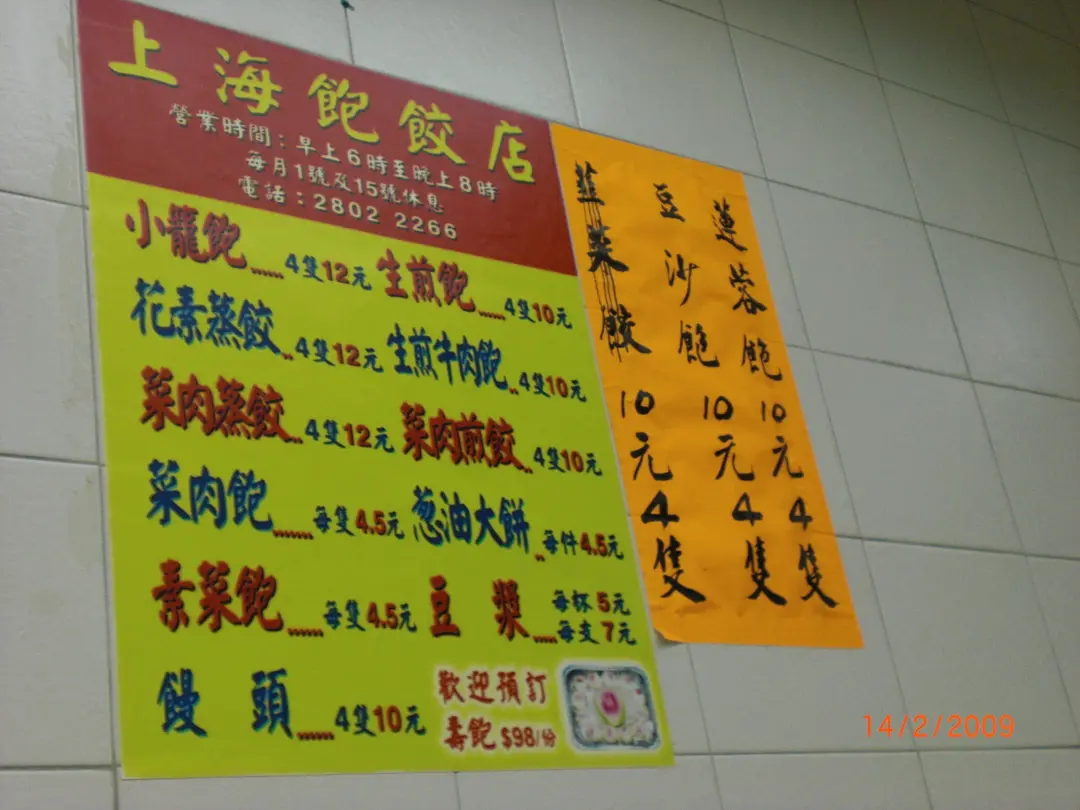 上海飽餃店
營業時間：早上6時至晚上8時
每月1號及15號休息
電話：2802 2266
小籠飽......4隻12元
生煎飽.....4隻10元
花素蒸餃..4隻12元
生煎牛肉飽..4隻10元
菜肉蒸餃..4隻12元
菜肉煎餃..4隻10元
菜肉飽.......每隻4.5元
葱油大餅..每件4.5元
素菜飽......每隻4.5元
豆漿....每杯5元
每支7元
饅頭......4隻10元
歡迎預訂
壽飽$98/份
韮菜餃10元4隻
豆沙飽10元4隻
蓮蓉飽10元4隻
14/2/2009